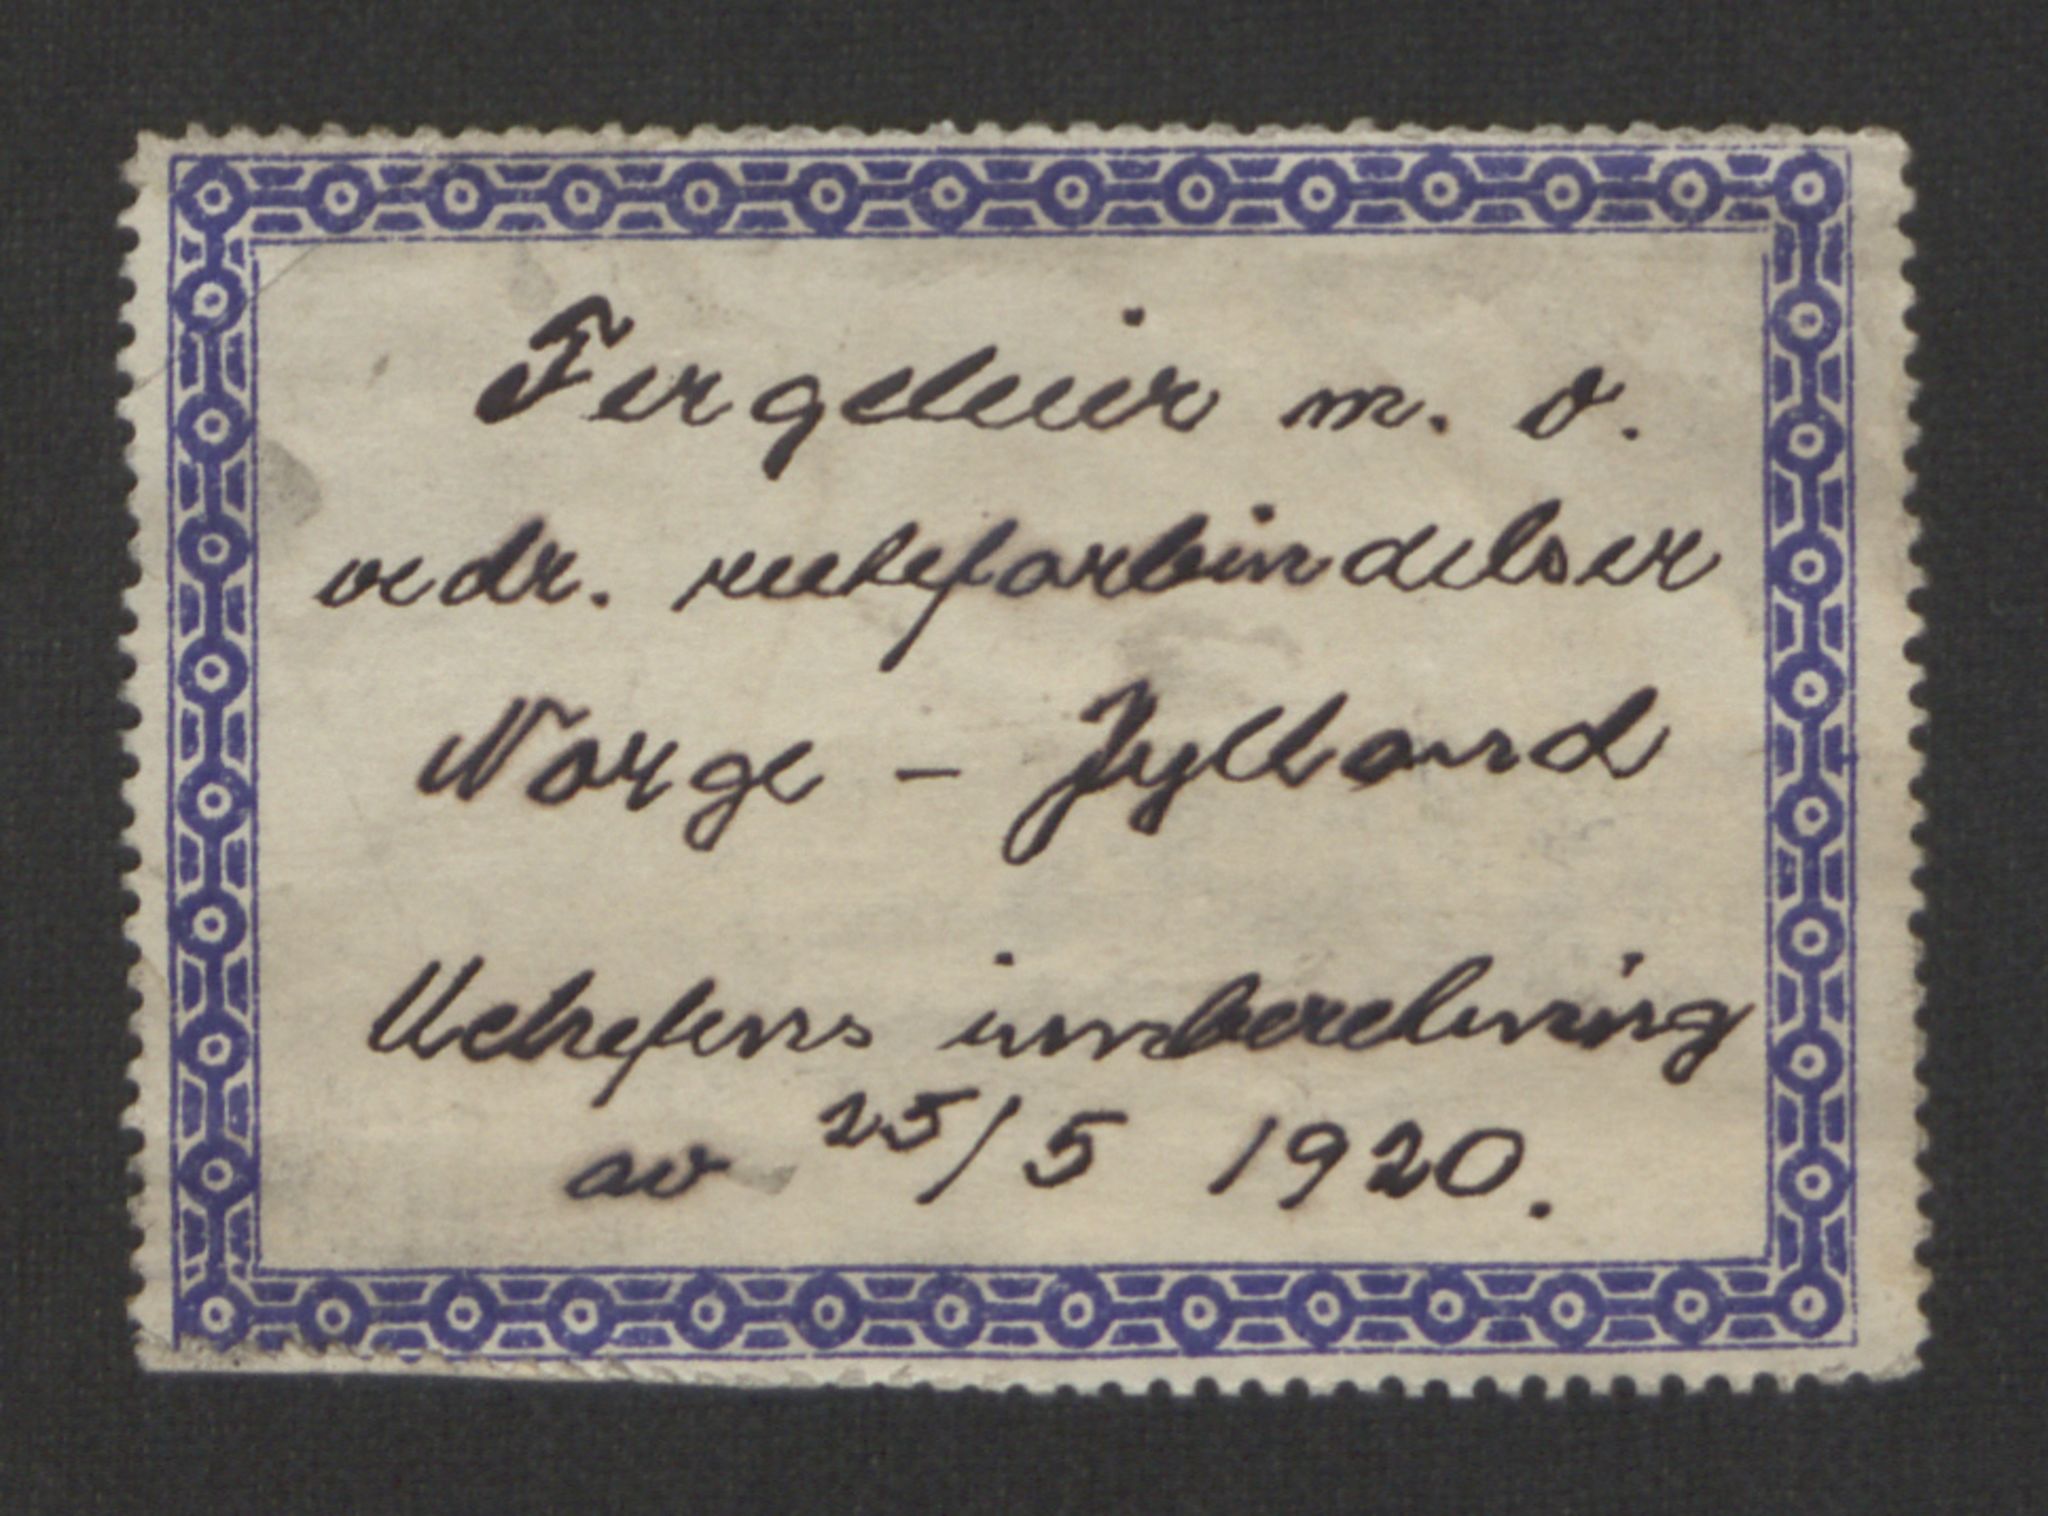 Fergeleier m. v.
vedr. ruteforbindelser
Norge - Jylland
innberetning
av 25/5 1920.